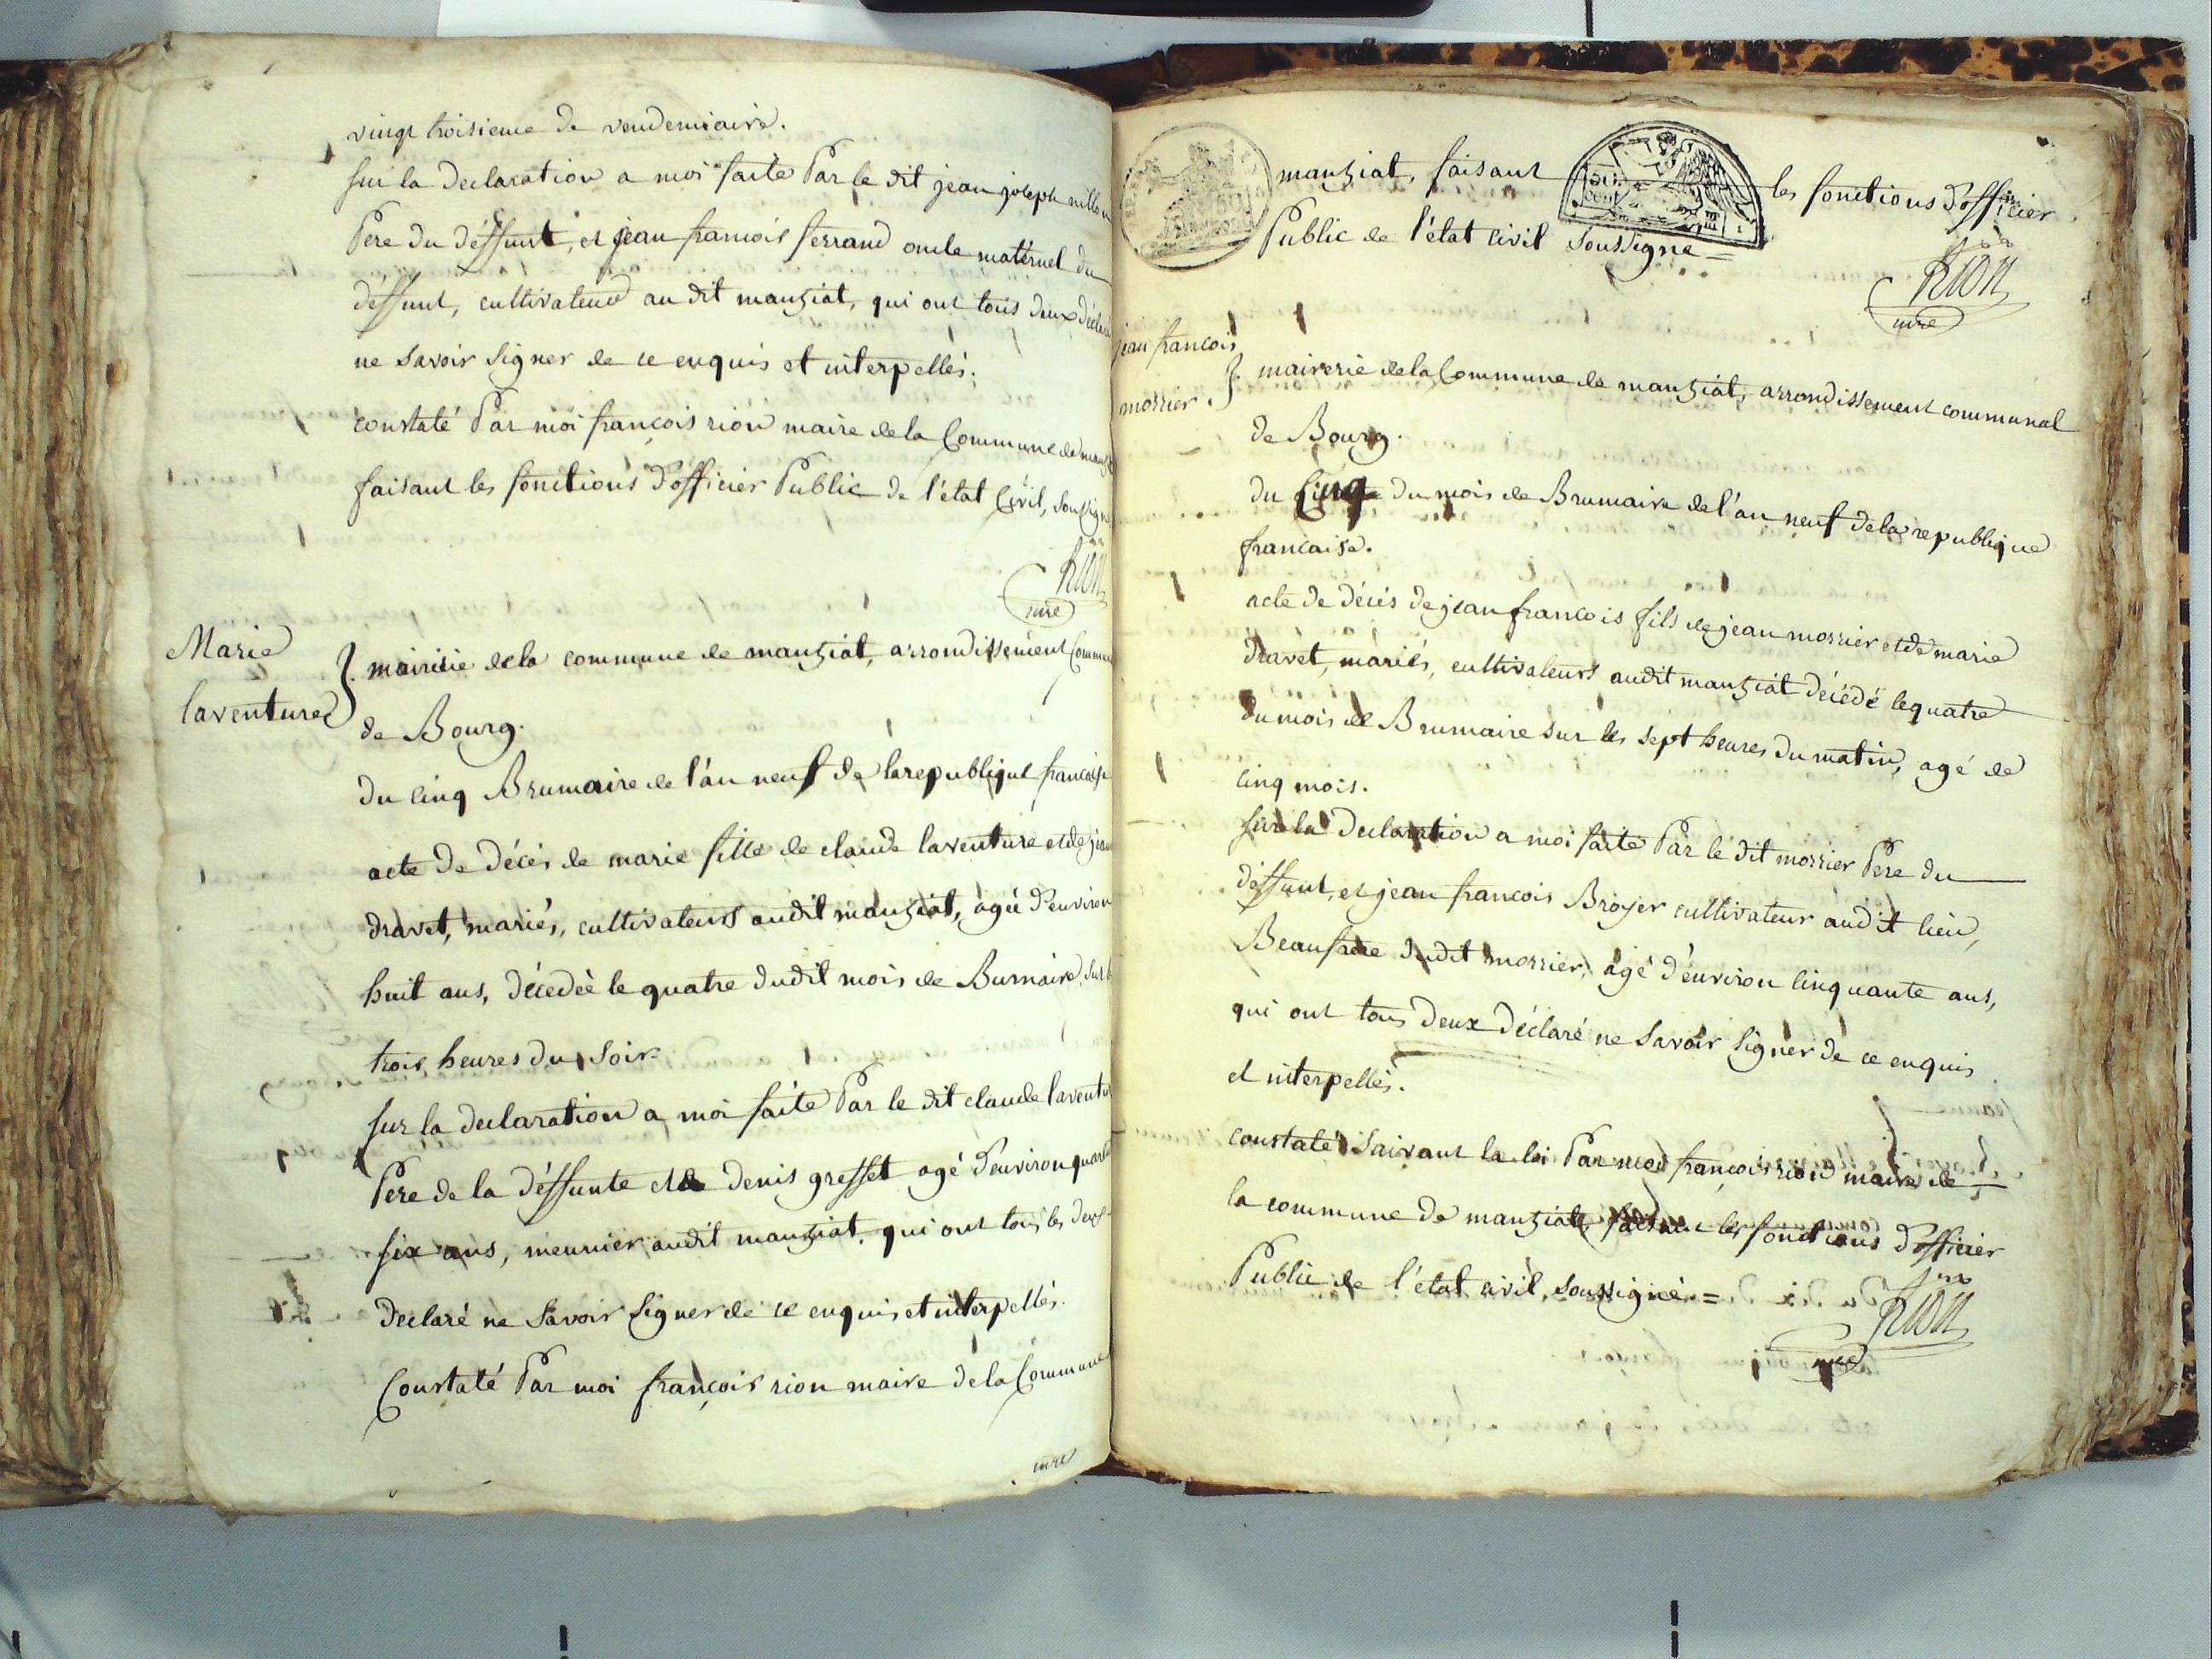 vingt troisieme de vendemiaire.
sur la declaration a moi faite Par le dit jean joseph
Pere du déffunt, et jean francois ferrand oncle maternel du
déffunt, cultivateur au dit manziat, qui ont tous deux
ne savoir signer de ce enquis et interpellés.
constaté Par moi françois rion maire de la Commune de
faisant les fonctions d'officier Public de l'état Civil,
Rion
mre
Marie
laventure
mairie de la commune de manziat, arrondissement
de Bourg.
du cinq Brumaire de l'an neuf de la republique francaise
acte de décés de marie fille de claude laventure et de
dravet, mariés, cultivateurs audit manziat, agée d'environ
huit ans, décedée le quatre dudit mois de Bumaire,
trois heures du soir.
sur la declaration a moi faite Par le dit claude
Pere de la déffunte et de denis gresset agé d'environ
six ans, meunier audit manziat, qui ont tous les deux
declaré ne savoir signer de ce enquis et interpellés.
Constaté Par moi françois rion maire de la Commune
mre
manziat, faisant les fonctions d'officier
Public de l'état civil soussigne =
Rion
mre
jean francois
morrier
mairerie de la Commune de manziat, arrondissement communal
de Bourg.
du Cinq du mois de Brumaire de l'an neuf de la republique
francaise.
acte de décés de jean francois fils de jean morrier et de marie
dravet, mariés, cultivateurs audit manziat décédé le quatre
du mois de Brumaire sur les sept heures du matin, agé de
cinq mois.
sur la declaration a moi faite Par le dit morrier Pere du
déffunt, et jean francois Broyer cultivateur audit lieu,
Beaufrere dudit morrier, agé d'environ cinquante ans,
qui ont tous deux déclaré ne savoir signer de ce enquis
et interpellés.
constaté suivant la loi Par moi françois rion maire de
la commune de manziat, faisant les fonctions d'officier
Public de l'état civil, soussigné =
Rion
mre